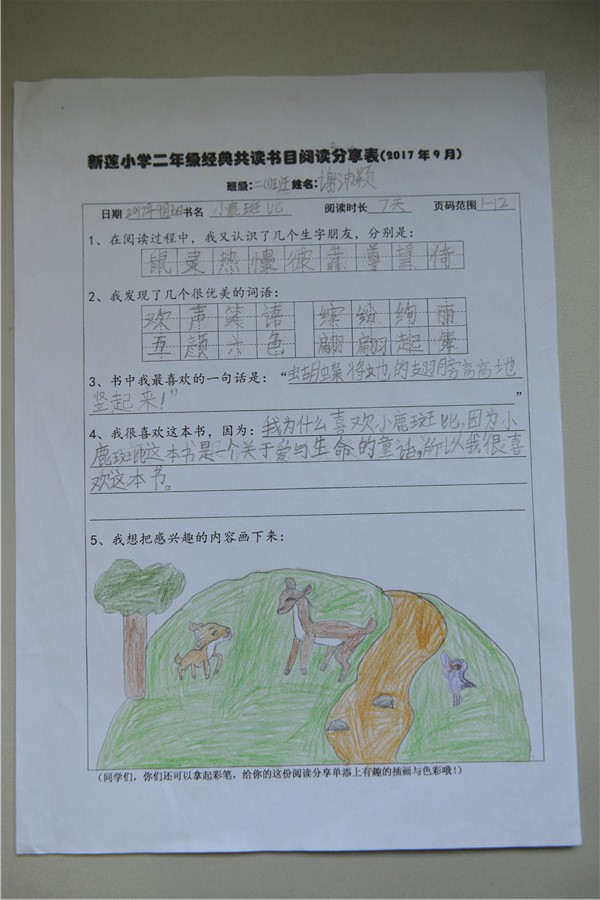 新莲小学二年级经典共读书目阅读分享表(2017年9月)
班级: 姓名:谢沛颖
日期 2017年9月 书名 小鹿斑比 阅读时长 7天 页码范围 1-12
1、在阅读过程中，我又认识了几个生字朋友，分别是：
鼠 灵 热 慢 彼 靠 尊 望 倚
2、我发现了几个很优美的词语：
欢 声 笑 语 缤 纷 绚 丽
五 颜 六 色 翩 翩 起 舞
3、书中我最喜欢的一句话是：“蝴蝶将她的翅膀高高地
竖起来!” ”
4、我很喜欢这本书，因为：我为什么喜欢小鹿斑比,因为小
鹿斑比这本书是一个关于爱与生命的童话,所以我很喜
欢这本书。
5、我想把感兴趣的内容画下来：
(同学们，你们还可以拿起彩笔，给你的这份阅读分享单添上有趣的插画与色彩哦!)